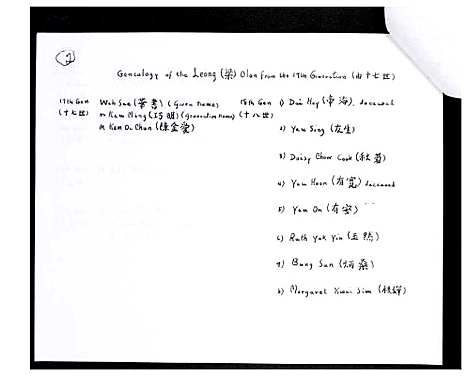 2
Genealogy of the Leong (梁) Clan from the 17th Generation (由十七世)
17th Gen Wah Sue (華書) (Given name) 18th Gen 1) Dai Hoy (帝海), deceased
(十七世) or Kem Ming (明) (generation name) (十八世)
m Kem O. Chan (陳金愛)
2) Yew Sing (友生)
3) Daisy Chow Cook (秋菊)
4) Yew Hoon (有寬) deceased
5) Yew On (有安) " "
6) Ruth Yuk Yin (玉然)
7) Bung Sun (炳燊)
8) Margaret Kwai Sim (桂嬋)